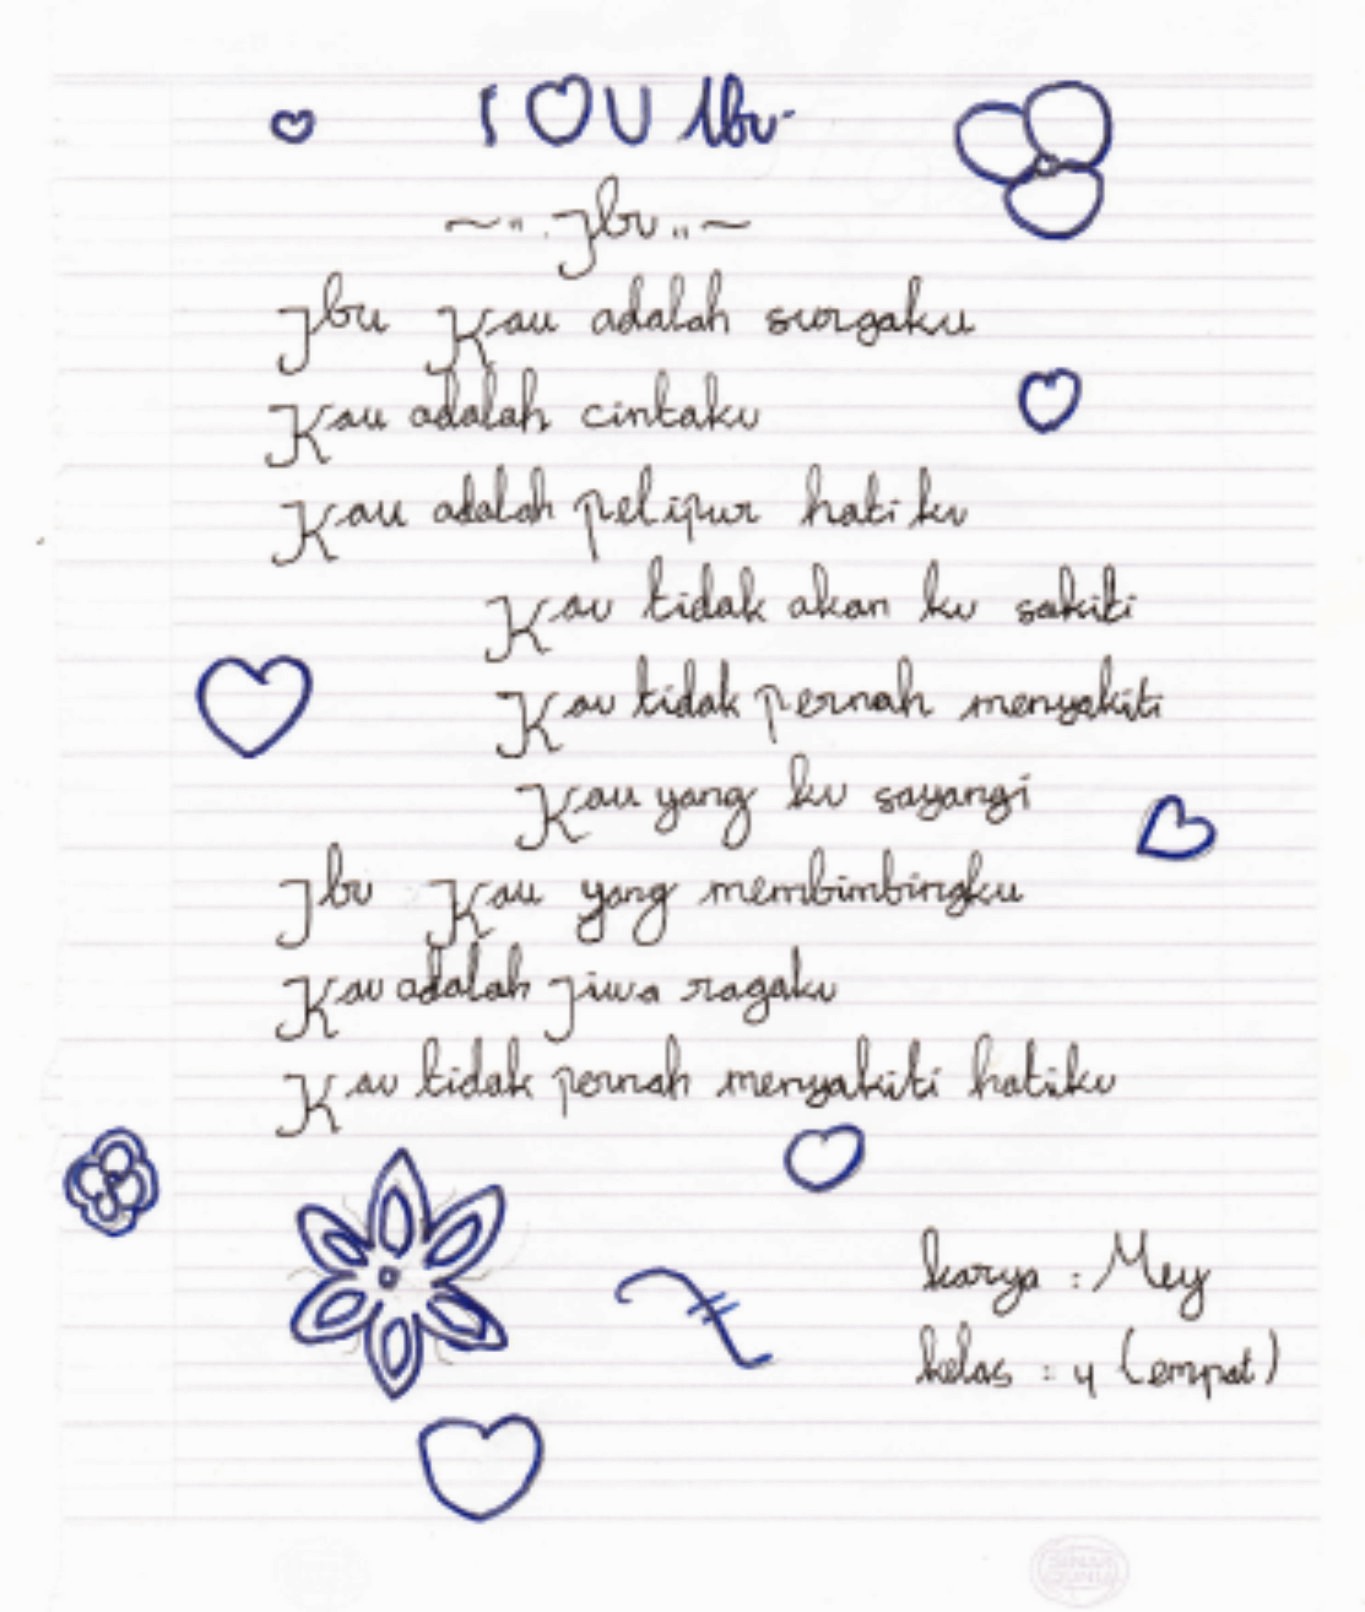 I ♡ U Ibu
~ " Ibu " ~
Ibu Kau adalah surgaku
Kau adalah cintaku
Kau adalah pelipur hati ku
Kau tidak akan ku sakiti
Kau tidak pernah menyakiti
Kau yang ku sayangi
Ibu Kau yang membimbingku
Kau adalah jiwa ragaku
Kau tidak pernah menyakiti hatiku
karya : Mey
kelas : 4 (empat)